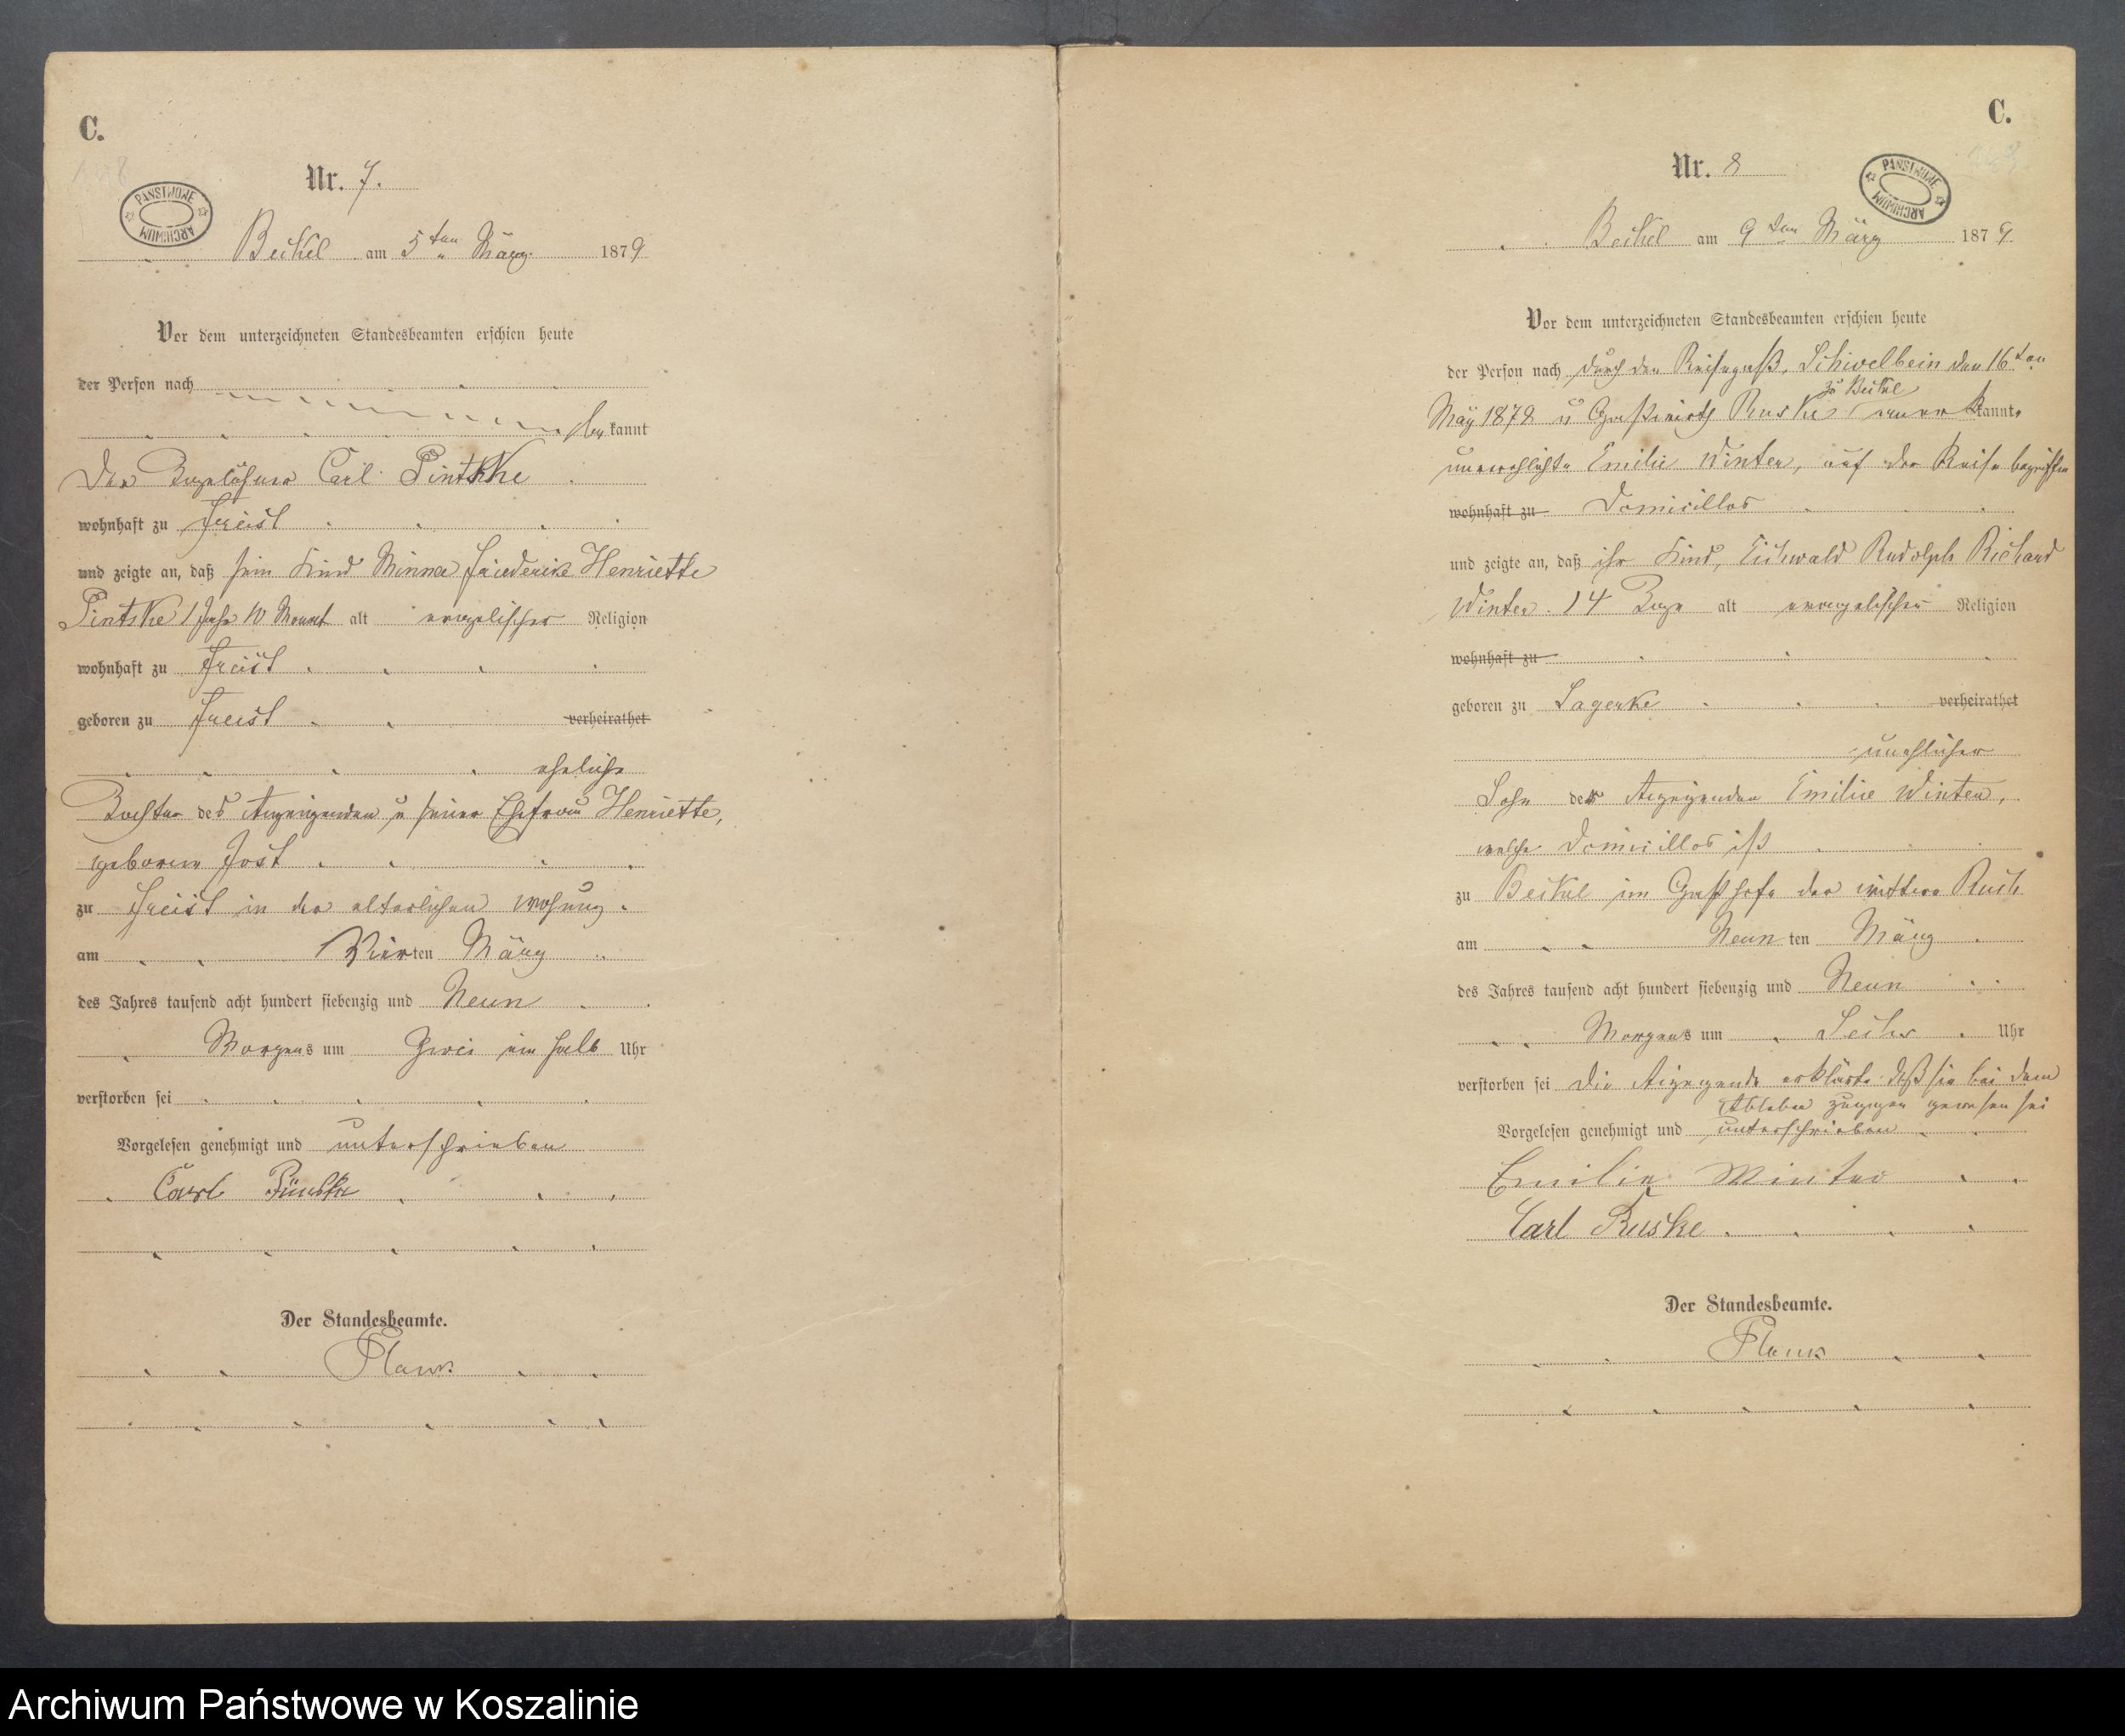 C.
Nr. 7.
PAŃSTWOWE ARCHIWUM
Beckel am 5ten März 1879
Vor dem unterzeichneten Standesbeamten erschien heute
der Person nach
bekannt
Der Tagelöhner Carl Pintske
wohnhaft zu Freist
und zeigte an, daß sein Kind Minna Friederike Henriette
Pintske 1 Jahr 10 Monat alt evangelischer Religion
wohnhaft zu Freist
geboren zu Freist verheirathet
eheliche
Tochter des Anzeigenden u seiner Ehefrau Henriette,
geborene Jost
zu Freist in der elterlichen Wohnung
am Vierten März
des Jahres tausend acht hundert siebenzig und Neun
Morgens um Zwei ein halb Uhr
verstorben sei
Vorgelesen genehmigt und unterschrieben
Carl
Der Standesbeamte.
C.
Nr. 8
PAŃSTWOWE ARCHIWUM
Beckel am 9ten März 1879
Vor dem unterzeichneten Standesbeamten erschien heute
der Person nach durch den Reisepaß, Schivelbein den 16ten
zu Beckel
May 1878 u Gastwirth Ruske anerkannt
unverehlichte Emilie Winter, auf der Reise begriffen
wohnhaft zu Domicillos
und zeigte an, daß ihr Kind, Eichwald Rudolph Richard
Winter 14 Tage alt evangelischer Religion
wohnhaft zu
geboren zu Lagerke verheirathet
unehlicher
Sohn der Anzeigenden Emilie Winter,
welche Domicillos ist
zu Beckel im Gasthofe der Rusk
am Neunten März
des Jahres tausend acht hundert siebenzig und Neun
Morgens um Sechs Uhr
verstorben sei Die Anzeigende erklärte daß sie bei dem
Ableben zugegen gewesen sei
Vorgelesen genehmigt und unterschrieben
Emilie Winter
Carl Ruske
Der Standesbeamte.
Archiwum Państwowe w Koszalinie